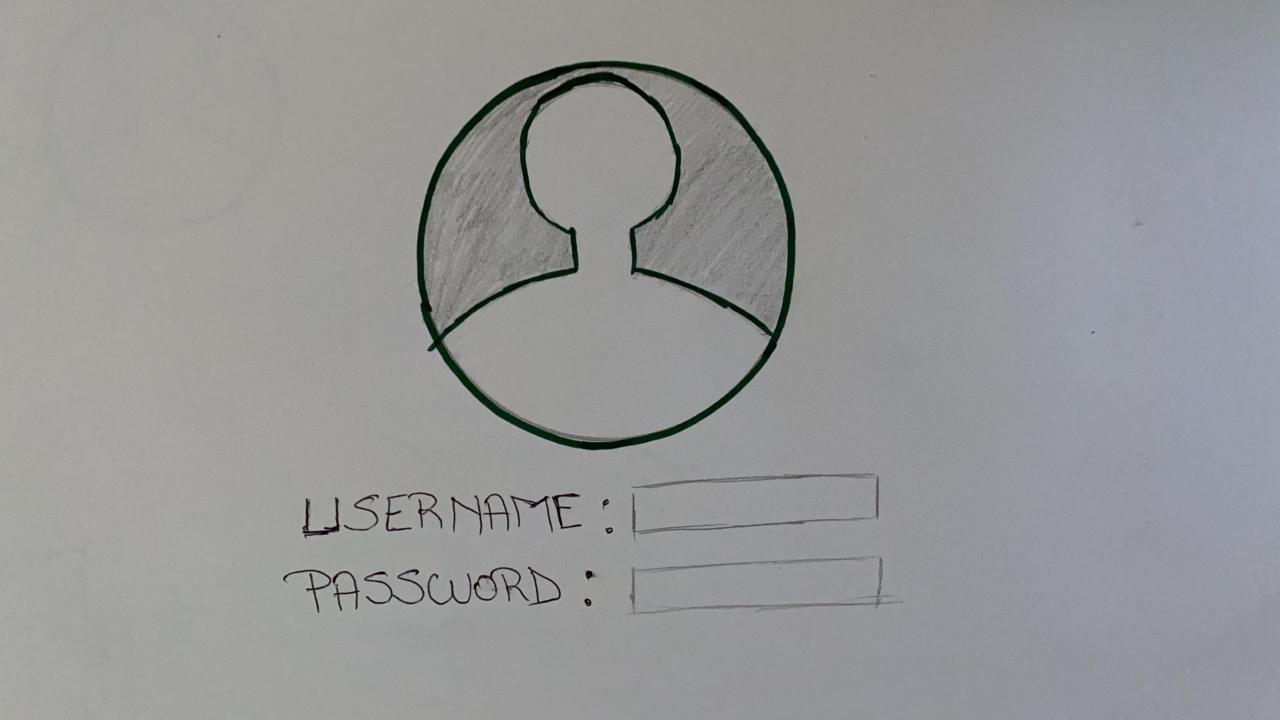 USERNAME:
PASSWORD: